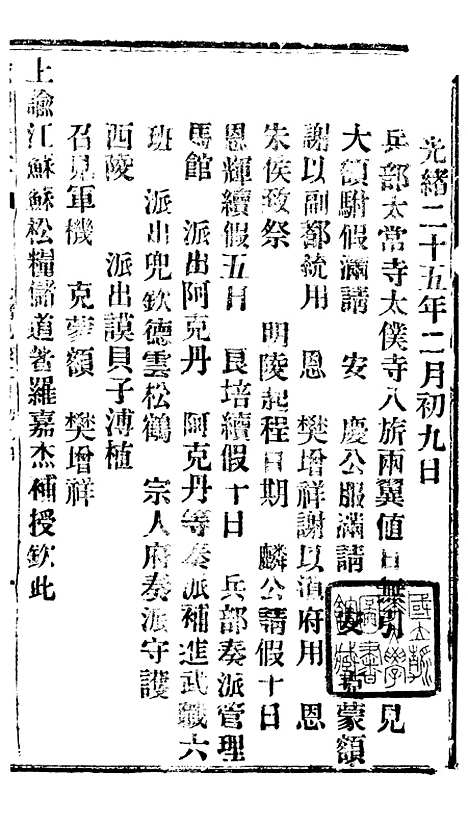 光緒二十五年二月初九日
兵部太常寺太僕寺八旂兩翼值日無引 見
大額駙假滿請 安 慶公服滿請 安 克蒙額
謝以副都統用 恩 樊增祥謝以道府用 恩
朱侯致祭 明陵起程日期 麟公請假十日
恩輝續假五日 良培續假十日 兵部奏派管理
馬館 派出阿克丹 阿克丹等奏派補進武職六
班 派出兜欽德雲松鶴 宗人府奏派守護
西陵 派出謨貝子溥植
召見軍機 克蒙額 樊增祥
上諭江蘇蘇松糧儲道着羅嘉杰補授欽此